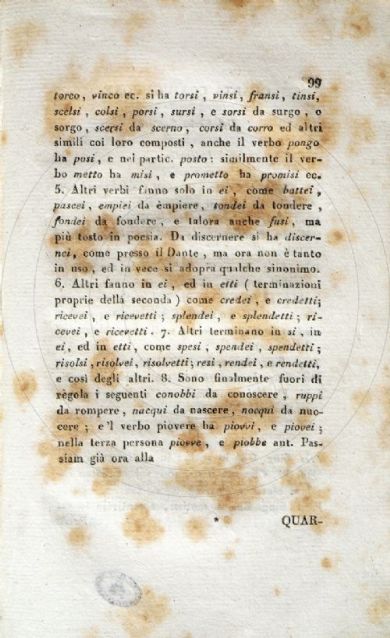 99
torco, vinco ec. si ha torsi, vinsi, fransi, tinsi,
scelsi, colsi, porsi, sursi, e sorsi da surgo, o
sorgo, scersi da scerno, corsi da corro ed altri
simili coi loro composti, anche il verbo pongo
ha posi, e nei partic. posto: similmente il ver-
bo metto ha misi, e prometto ha promisi ec.
5. Altri verbi fanno solo in ei, come battei,
pascei, empiei da empiere, tondei da tondere,
fondei da fondere, e talora anche fusi, ma
più tosto in poesia. Da discernere si ha discer-
nei, come presso il Dante, ma ora non è tanto
in uso, ed in vece si adopra qualche sinonimo.
6. Altri fanno in ei, ed in etti (terminazioni
proprie della seconda) come credei, e credetti;
ricevei, e ricevetti; splendei, e splendetti; ri-
cevei, e ricevetti. 7. Altri terminano in si, in
ei, ed in etti, come spesi, spendei, spendetti;
risolsi, risolvei, risolvetti; resi, rendei, e rendetti,
e così degli altri. 8. Sono finalmente fuori di
regola i seguenti conobbi da conoscere, ruppi
da rompere, nacqui da nascere, nocqui da nuo-
cere; e'l verbo piovere ha piovvi, e piovei;
nella terza persona piovve, e piobbe ant. Pas-
siam già ora alla
* QUAR-